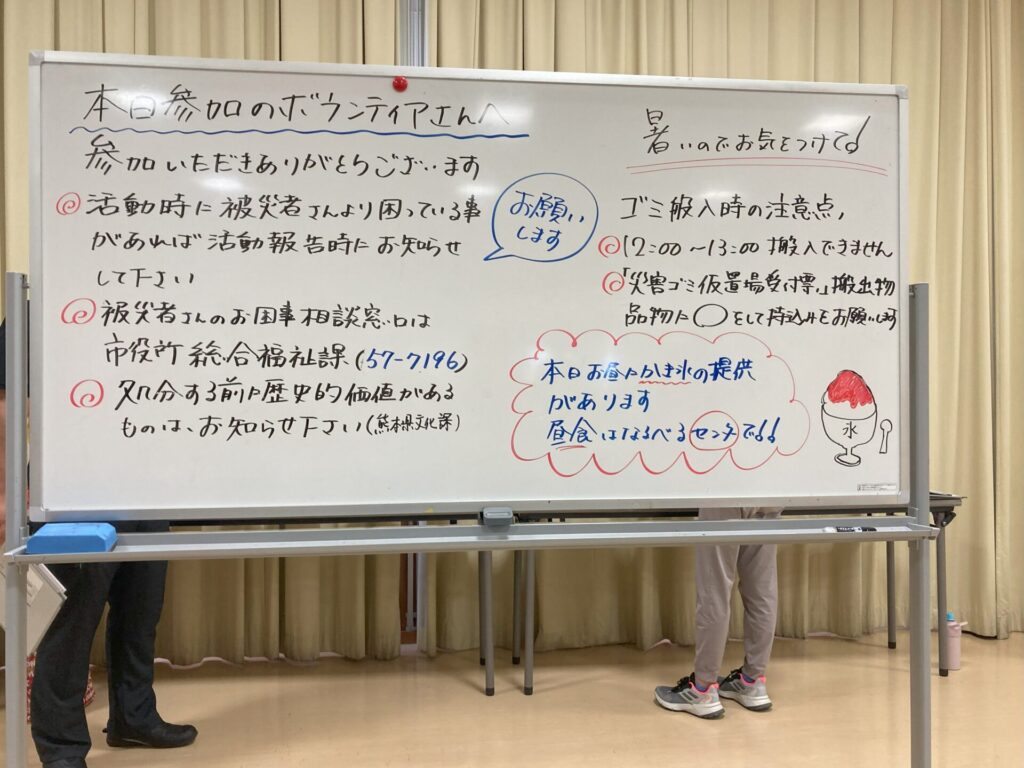 本日参加のボランティアさんへ
参加いただきありがとうございます
活動時に被災者さんより困っている事
があれば活動報告時にお知らせ
して下さい
被災者さんのお困事相談窓口は
市役所 総合福祉課 (57-7196)
処分する前に歴史的価値がある
ものは、お知らせ下さい(熊本県文化課)
お願い
します
暑いのでお気をつけて!
ゴミ搬入時の注意点
12:00～13:00 搬入できません
「災害ゴミ仮置場受付票」搬出物
品物に〇をして持込みをお願いします
本日お昼にかき氷の提供
があります
昼食はなるべくセンターで!!
氷